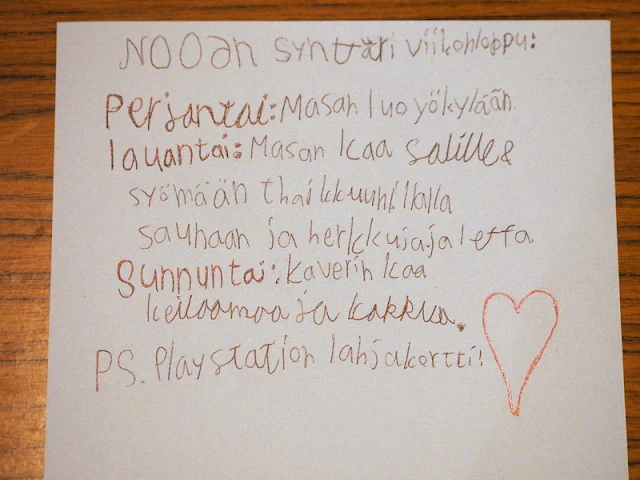 NOOan synttäri viikohloppu:
Perjantai: Masan luo yökylään
lauantai: Masan kaa salille &
syömään thaikkuuh! Illalla
sauhaan ja herkkuja ja leffa.
Sunnuntai: kaverin kaa
keilaamaa ja kakkua.
PS. Playstation lahjakortti!